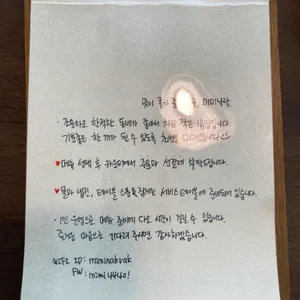 · 조용하고 한적한 동네가 좋아서 차린 작은 밥집입니다.
기분좋은 한 끼가 될 수 있도록 최선을 다하겠습니다
♥메뉴 선택 후 카운터에서 주문과 선결제 부탁드립니다.
♥물과 냅킨, 테이블 소품 집게는 서비스테이블에 준비되어 있습니다.
· 1인 운영으로 메뉴 준비에 다소 시간이 걸릴 수 있습니다.
즐거운 마음으로 기다려 주시면 감사하겠습니다.
WIFI ID : meminakrak
PW : mimi4440!